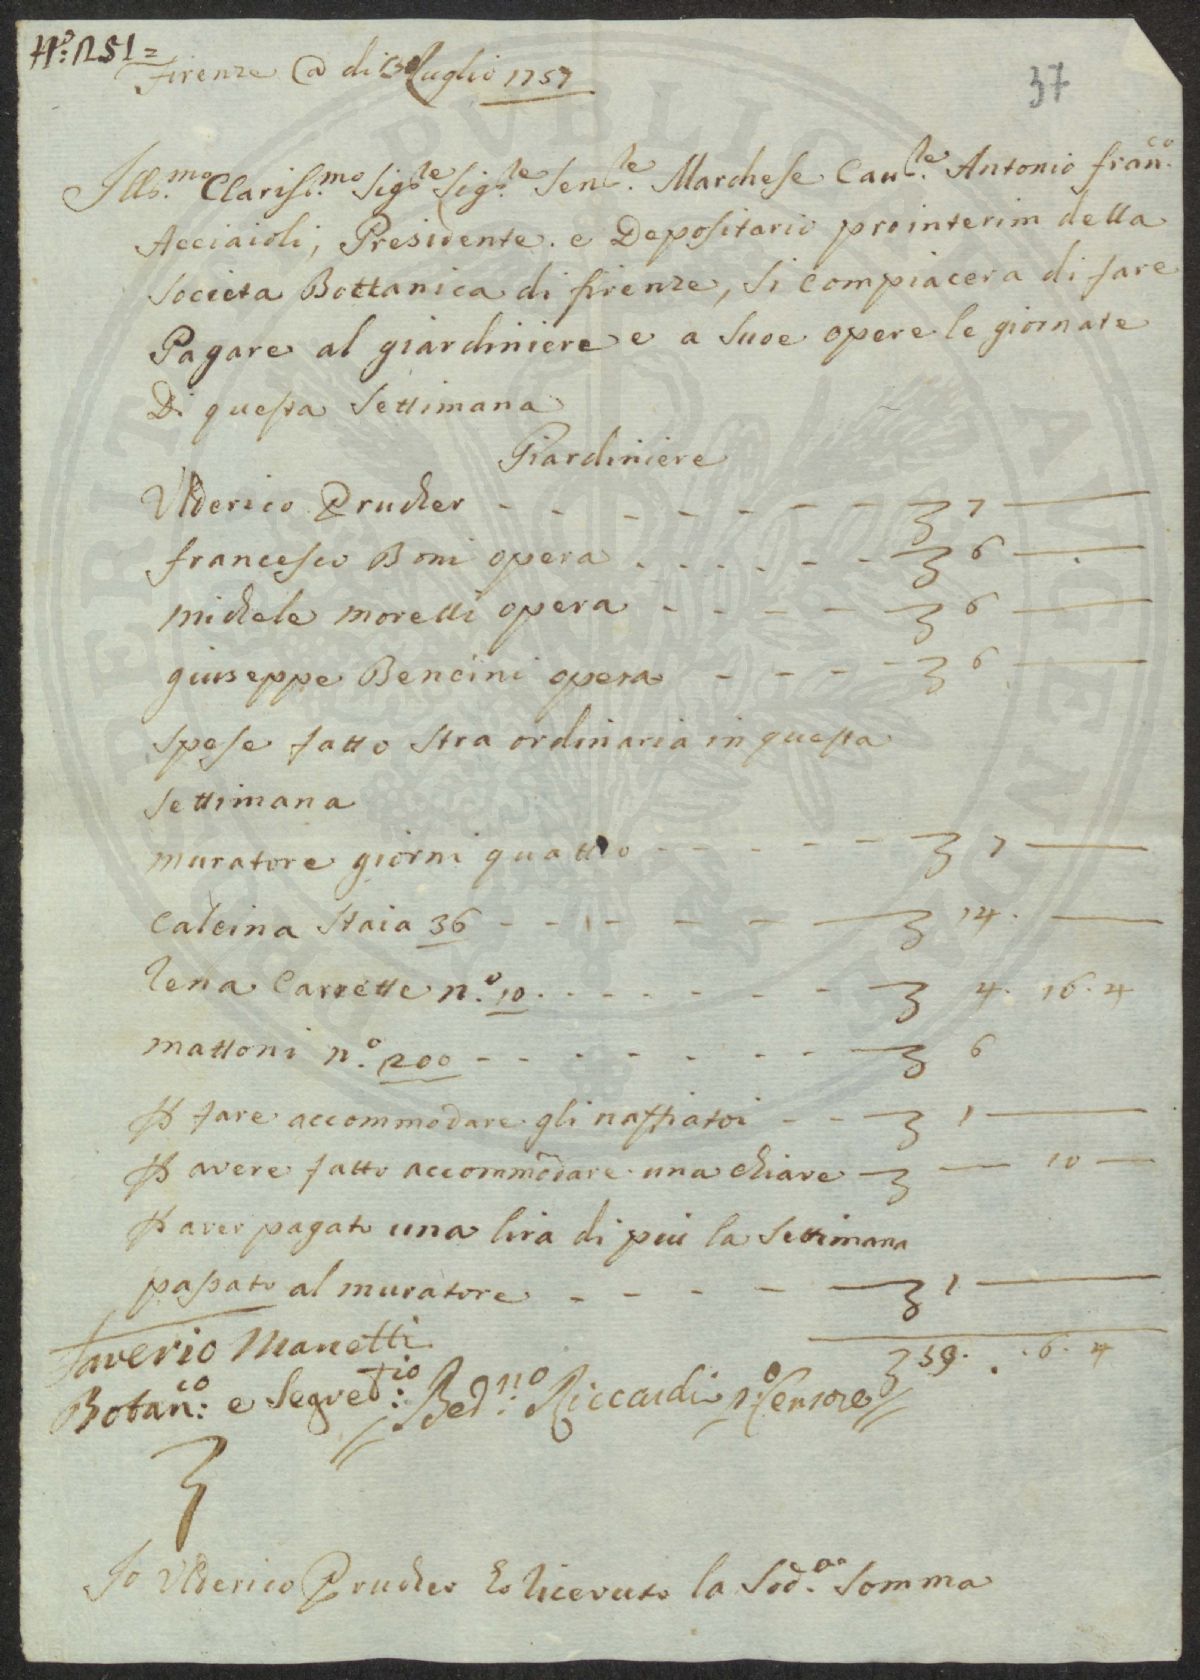 N.º 251=
Firenze @ di 30 Luglio 1757
37
Ills.mo Clariss.mo Sig.le Sig.le Sen.le Marchese Cau.le Antonio fran.co
Acciaioli, Presidente e Depositario prointerim della
Societa Bottanica di firenze, si Compiacera di fare
Pagare al giardiniere e a Suoe opere le giornate
Di questa Settimana
Giardiniere
Ulderico Prucher - - - - - - - 7 —
francesco Boni opera - - - - - - 6 —
michele moretti opera - - - - 6 —
giuseppe Bencini opera - - - - 6 —
spese fatto stra ordinaria in questa
settimana
muratore giorni quattro - - - - - 7 —
Calcina Staia 36 - - - - - - 14. —
lena Carrette n.º 10. - - - - - - 4. 16. 4
mattoni n.º 200 - - - - - - - 6
P fare accommodare gli naffiatoi - - 1 —
P avere fatto accommodare una chiave — 10 —
P aver pagato una lira di piu la Settimana
passato al muratore - - - - 1 —
59. . 6. 4
Saverio Manetti
Botan.co e Segret.io Bed.no Riccardi P.º Censore
Io Ulderico Prucher ho riceuuto la Sod.a Somma